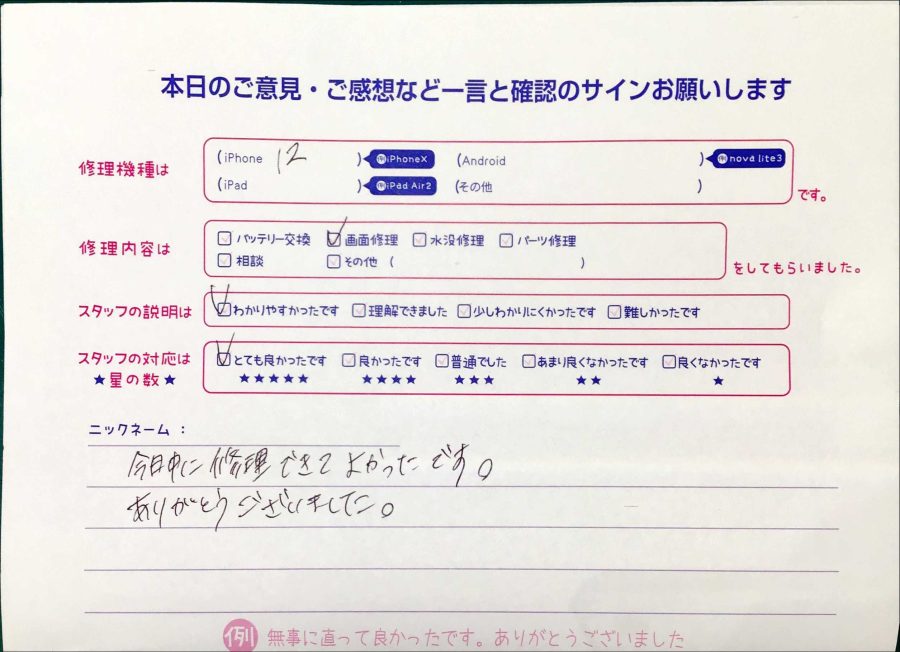 本日のご意見・ご感想など一言と確認のサインお願いします
修理機種は (iPhone 12 ) 例iPhoneX (Android ) 例nova lite3
(iPad ) 例iPad Air2 (その他 ) です。
修理内容は バッテリー交換 画面修理 水没修理 パーツ修理
相談 その他 ( ) をしてもらいました。
スタッフの説明は わかりやすかったです 理解できました 少しわかりにくかったです 難しかったです
スタッフの対応は とても良かったです 良かったです 普通でした あまり良くなかったです 良くなかったです
★星の数★ ★★★★★ ★★★★ ★★★ ★★ ★
ニックネーム：
今日中に修理できてよかったです。
ありがとうございました。
例 無事に直って良かったです。ありがとうございました